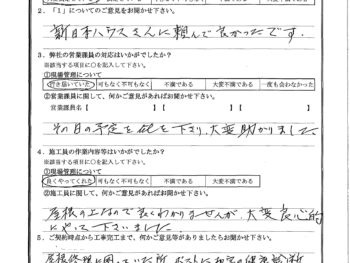 2．「1」についてのご意見をお聞かせ下さい。
新日本ハウスさんに頼んで良かったです.
3．弊社の営業課員の対応はいかがでしたか？
※該当する項目に○を記入して下さい。
①現場管理について
行き届いていた 可もなく不可もなく 不満である 大変不満である 一度も会わなかった
②営業課員に関して、何かご意見があればお聞かせ下さい。
営業課員名【 】【 】【 】
その日の予定を 下さり、大変助かりました
4．施工員の作業内容等はいかがでしたか？
※該当する項目に○を記入して下さい。
①現場管理について
良くやってくれた 可もなく不可もなく 不満である 大変不満である
②施工員に関して、何かご意見があればお聞かせ下さい。
屋根の上なので良くわかりませんが、大変良心的
にやって下さいました.
5．ご契約時点から工事完工まで、何かご意見等がありましたらお聞かせ下さい。
屋根修理に困っていた所